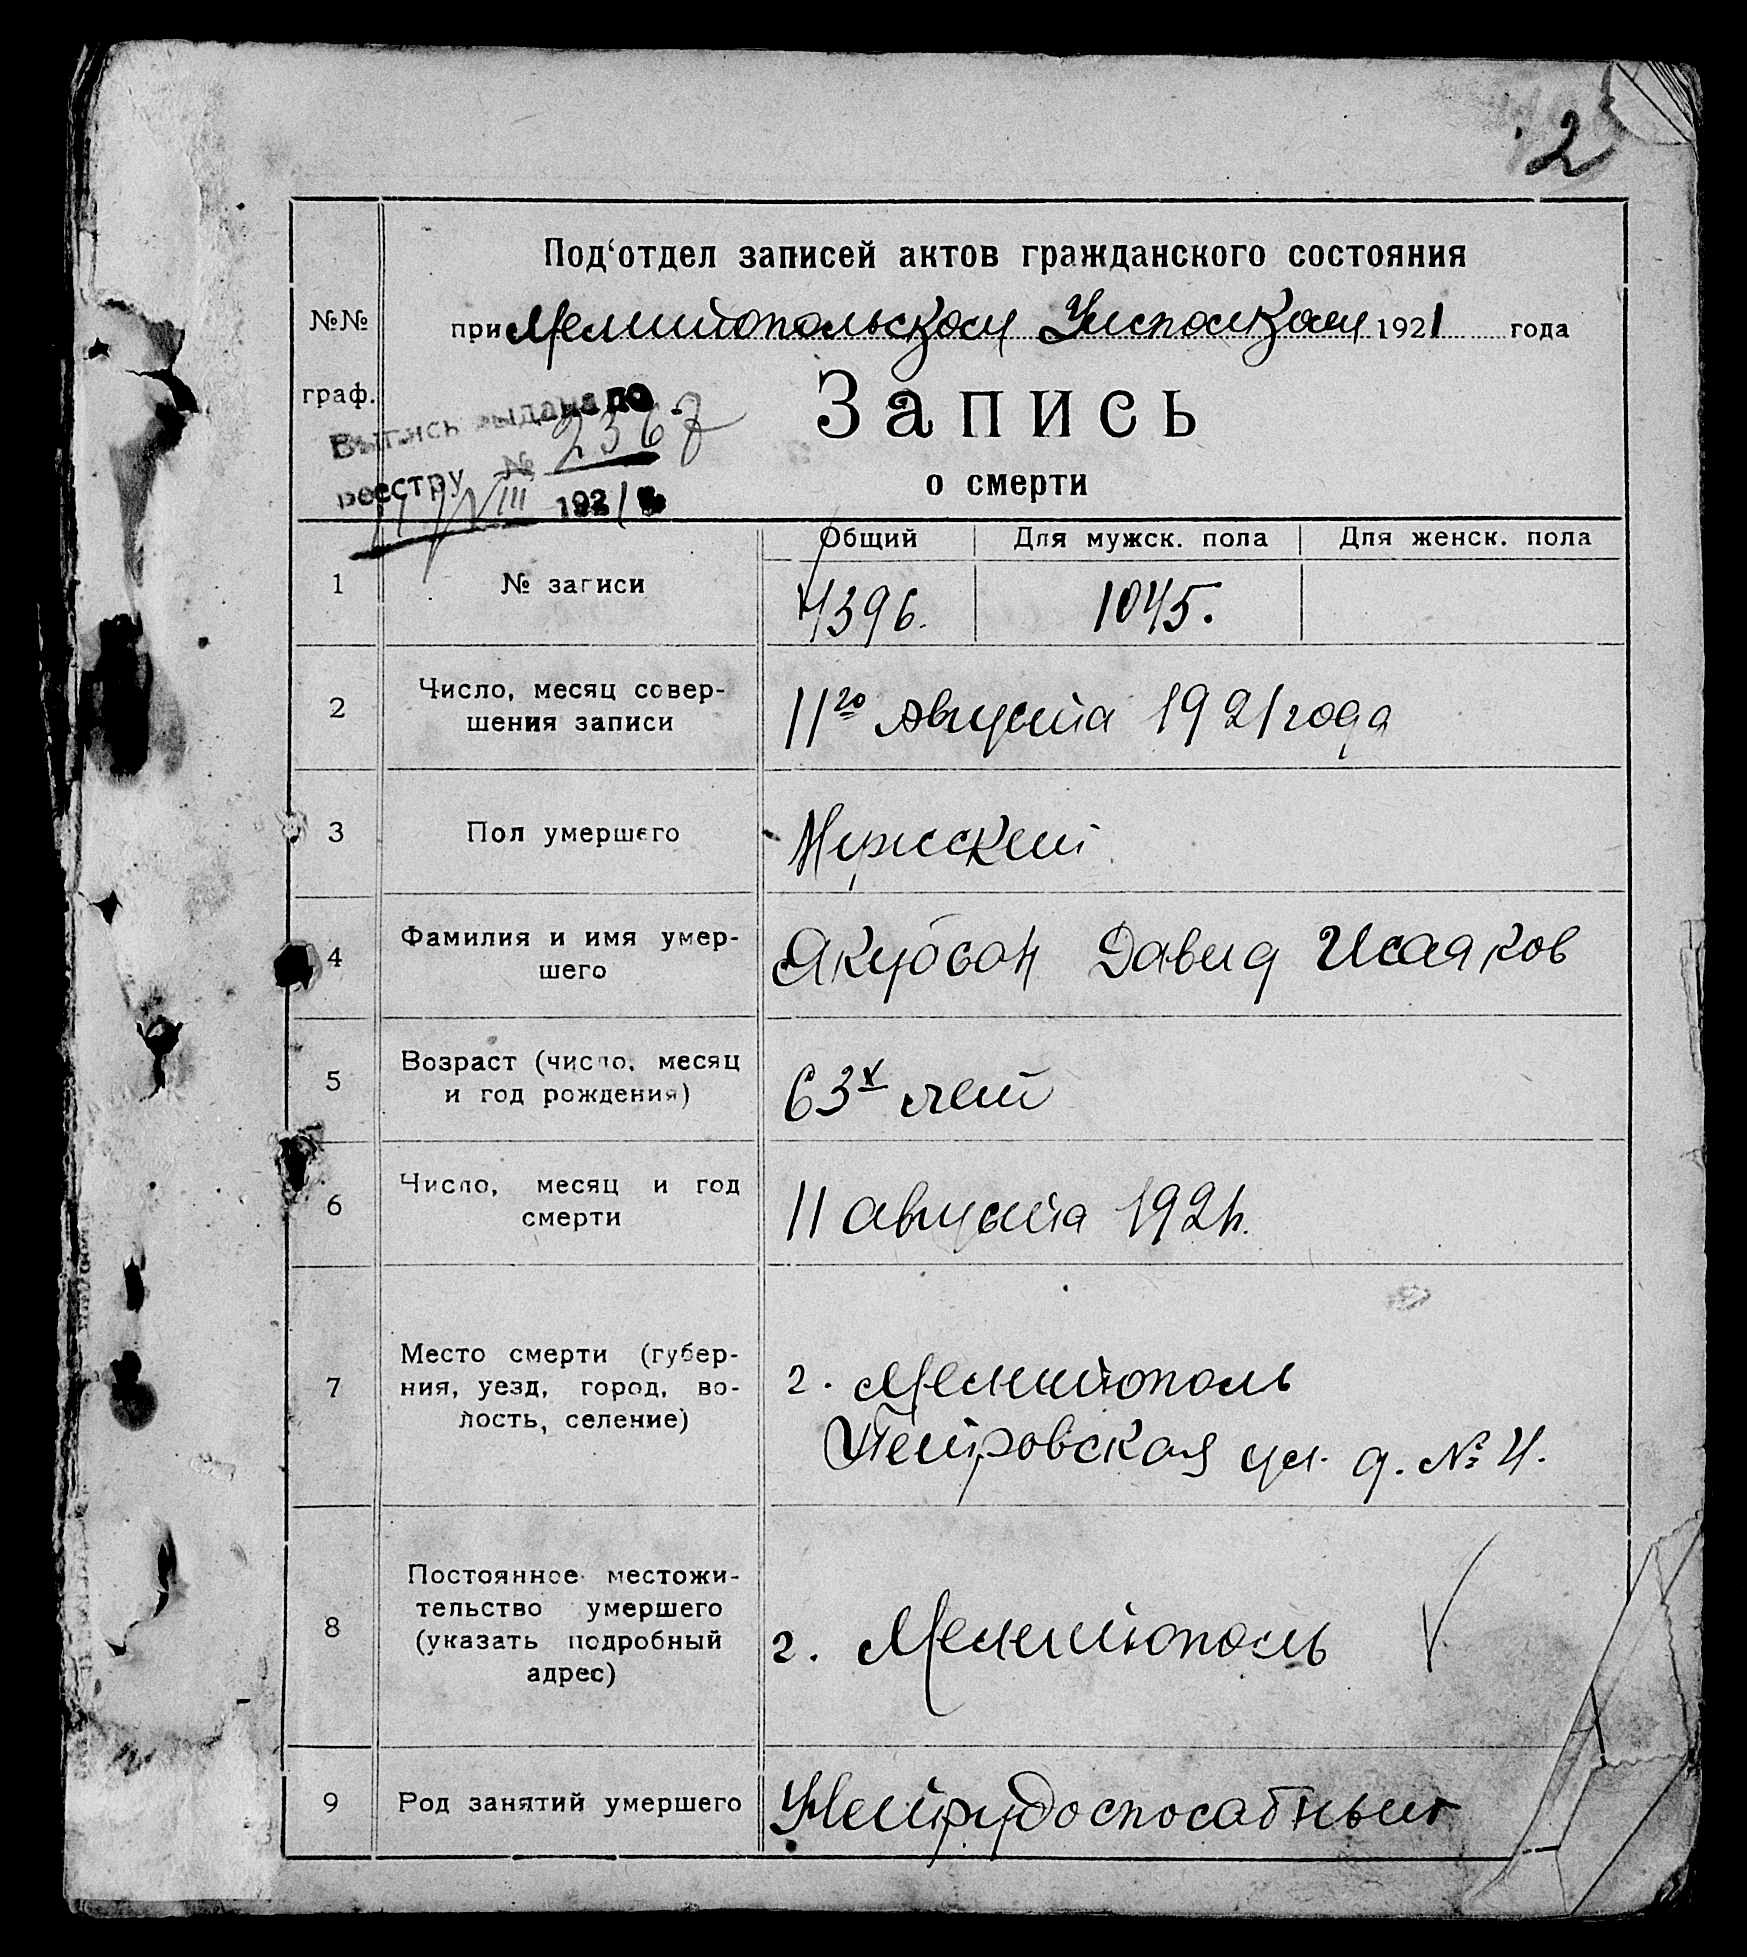 2
Под‘отдел записей актов гражданского состояния
№№
при Мелитопольском Уисполком 1921 года
граф.
Запись
Выпись выдана по
реестру № 2367
11/VIII 1921
о смерти
Общий Для мужск. пола Для женск. пола
1 № записи 4396. 1045.
2 Число, месяц совер-
шения записи 11го августа 1921 года
3 Пол умершего Мужской
4 Фамилия и имя умер-
шего Якубсон Давид Исааков
5 Возраст (число, месяц
и год рождения) 63х лет
6 Число, месяц и год
смерти 11 августа 1921г.
7 Место смерти (губер-
ния, уезд, город, во-
лость, селение)
г. Мелитополь
Петровская ул. д. № 4.
8 Постоянное местожи-
тельство умершего
(указать подробный
адрес)
г. Мелитополь
9 Род занятий умершего Нетрудоспособный